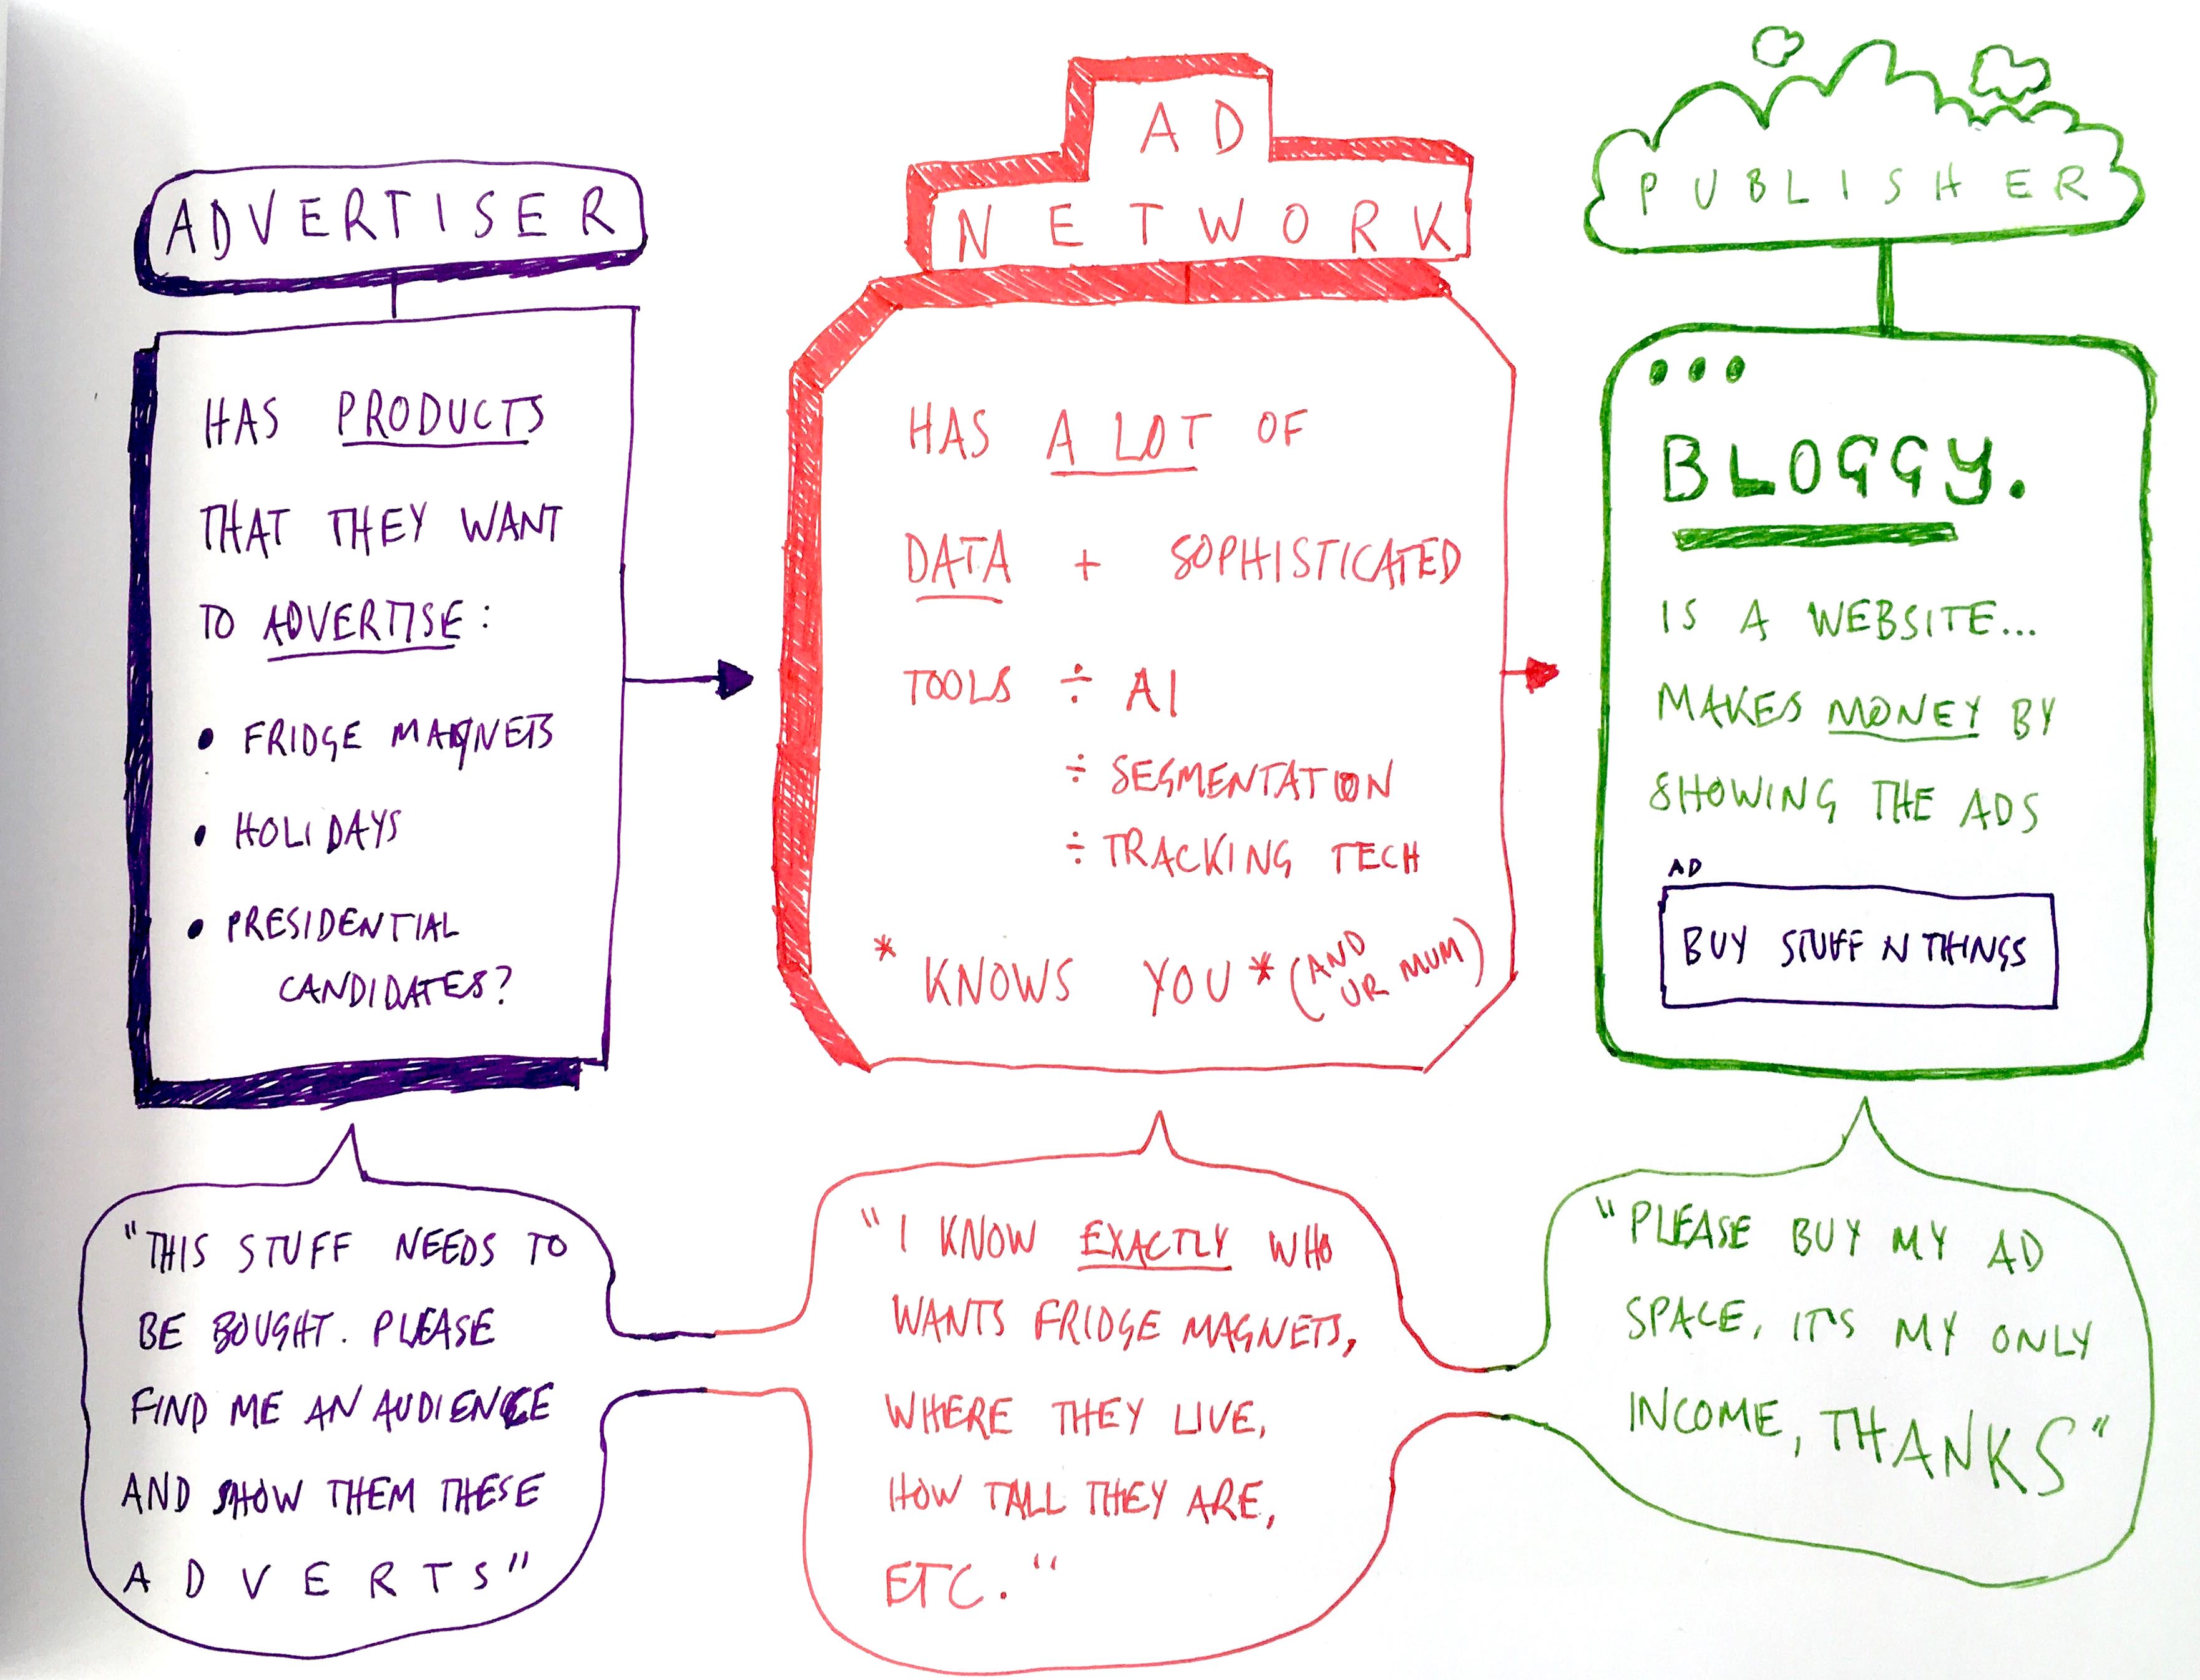 ADVERTISER
HAS PRODUCTS
THAT THEY WANT
TO ADVERTISE:
• FRIDGE MAGNETS
• HOLIDAYS
• PRESIDENTIAL
CANDIDATES?
"THIS STUFF NEEDS TO
BE BOUGHT. PLEASE
FIND ME AN AUDIENCE
AND SHOW THEM THESE
ADVERTS"
AD
NETWORK
HAS A LOT OF
DATA + SOPHISTICATED
TOOLS ÷ AI
÷ SEGMENTATION
÷ TRACKING TECH
* KNOWS YOU * (AND
UR MUM)
"I KNOW EXACTLY WHO
WANTS FRIDGE MAGNETS,
WHERE THEY LIVE,
HOW TALL THEY ARE,
ETC."
PUBLISHER
BLOGGY.
IS A WEBSITE...
MAKES MONEY BY
SHOWING THE ADS
AD
BUY STUFF N THINGS
"PLEASE BUY MY AD
SPACE, IT'S MY ONLY
INCOME, THANKS"